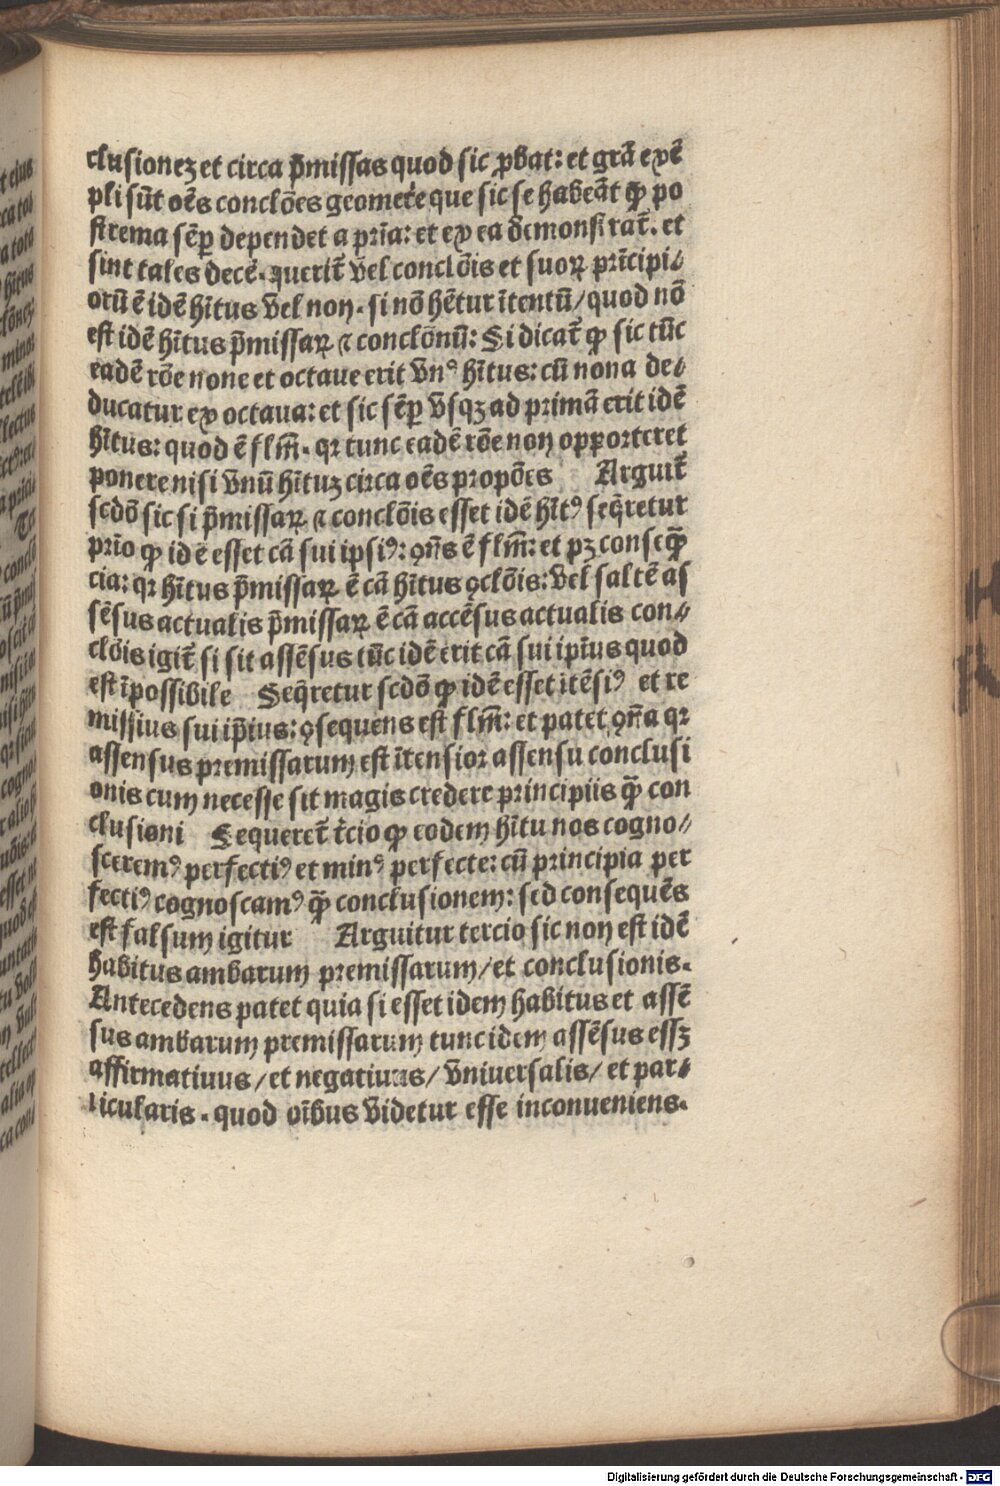 clusioneʒ et circa p̄missas quod sic ꝓbat: et grā exē
pli sūt oēs conclōes geometr̄e que sic se habeāt ꝙ po
strema sēꝑ dependet a pr̄ia: et ex ea demonstrat̄. et
sint tales decē. querit̄ vel conclōis et suoꝝ prīcipi⸗
orū ē idē hītus vel non. si nō hētur ītentū/ quod nō
est idē hītus p̄missaꝝ ⁊ conclōnū: Si dicat̄ ꝙ sic tūc
eadē rōe none et octaue erit vnꝰ hītus: cū nona de⸗
ducatur ex octaua: et sic sēꝑ vsqꝫ ad primā erit idē
hītus: quod ē flm̄. qr tunc eadē rōe non opporteret
ponere nisi vnū hītuʒ circa oēs propōes Arguit̄
scdō sic si p̄missaꝝ ⁊ conclōis esset idē hītꝰ seq̄retur
prīo ꝙ idē esset cā sui ipsiꝰ: ꝯn̄s ē flm̄: et pʒ conseq̄
cia: qr hītus p̄missaꝝ ē cā hītus ꝯclōis: vel saltē as
sēsus actualis p̄missaꝝ ē cā accēsus actualis con⸗
clōis igit̄ si sit assēsus tūc idē erit cā sui ip̄ius quod
est īpossibile Seq̄retur scdō ꝙ idē esset ītēsiꝰ et re
missius sui ip̄ius: ꝯsequens est flm̄: et patet ꝯn̄a qr
assensus premissarum est ītensior assensu conclusi
onis cum necesse sit magis credere principiis q̄ con
clusioni Sequeret̄ t̄cio ꝙ eodem hītu nos cogno⸗
sceremꝰ perfectiꝰ et minꝰ perfecte: cū principia per
fectiꝰ cognoscamꝰ q̄ conclusionem: sed consequēs
est falsum igitur Arguitur tercio sic non est idē
habitus ambarum premissarum/ et conclusionis.
Antecedens patet quia si esset idem habitus et assē
sus ambarum premissarum tunc idem assēsus essʒ
affirmatiuus/ et negatiuus/ vniuersalis/ et par⸗
ticularis. quod oībus videtur esse inconueniens.
Digitalisierung gefördert durch die Deutsche Forschungsgemeinschaft - DFG